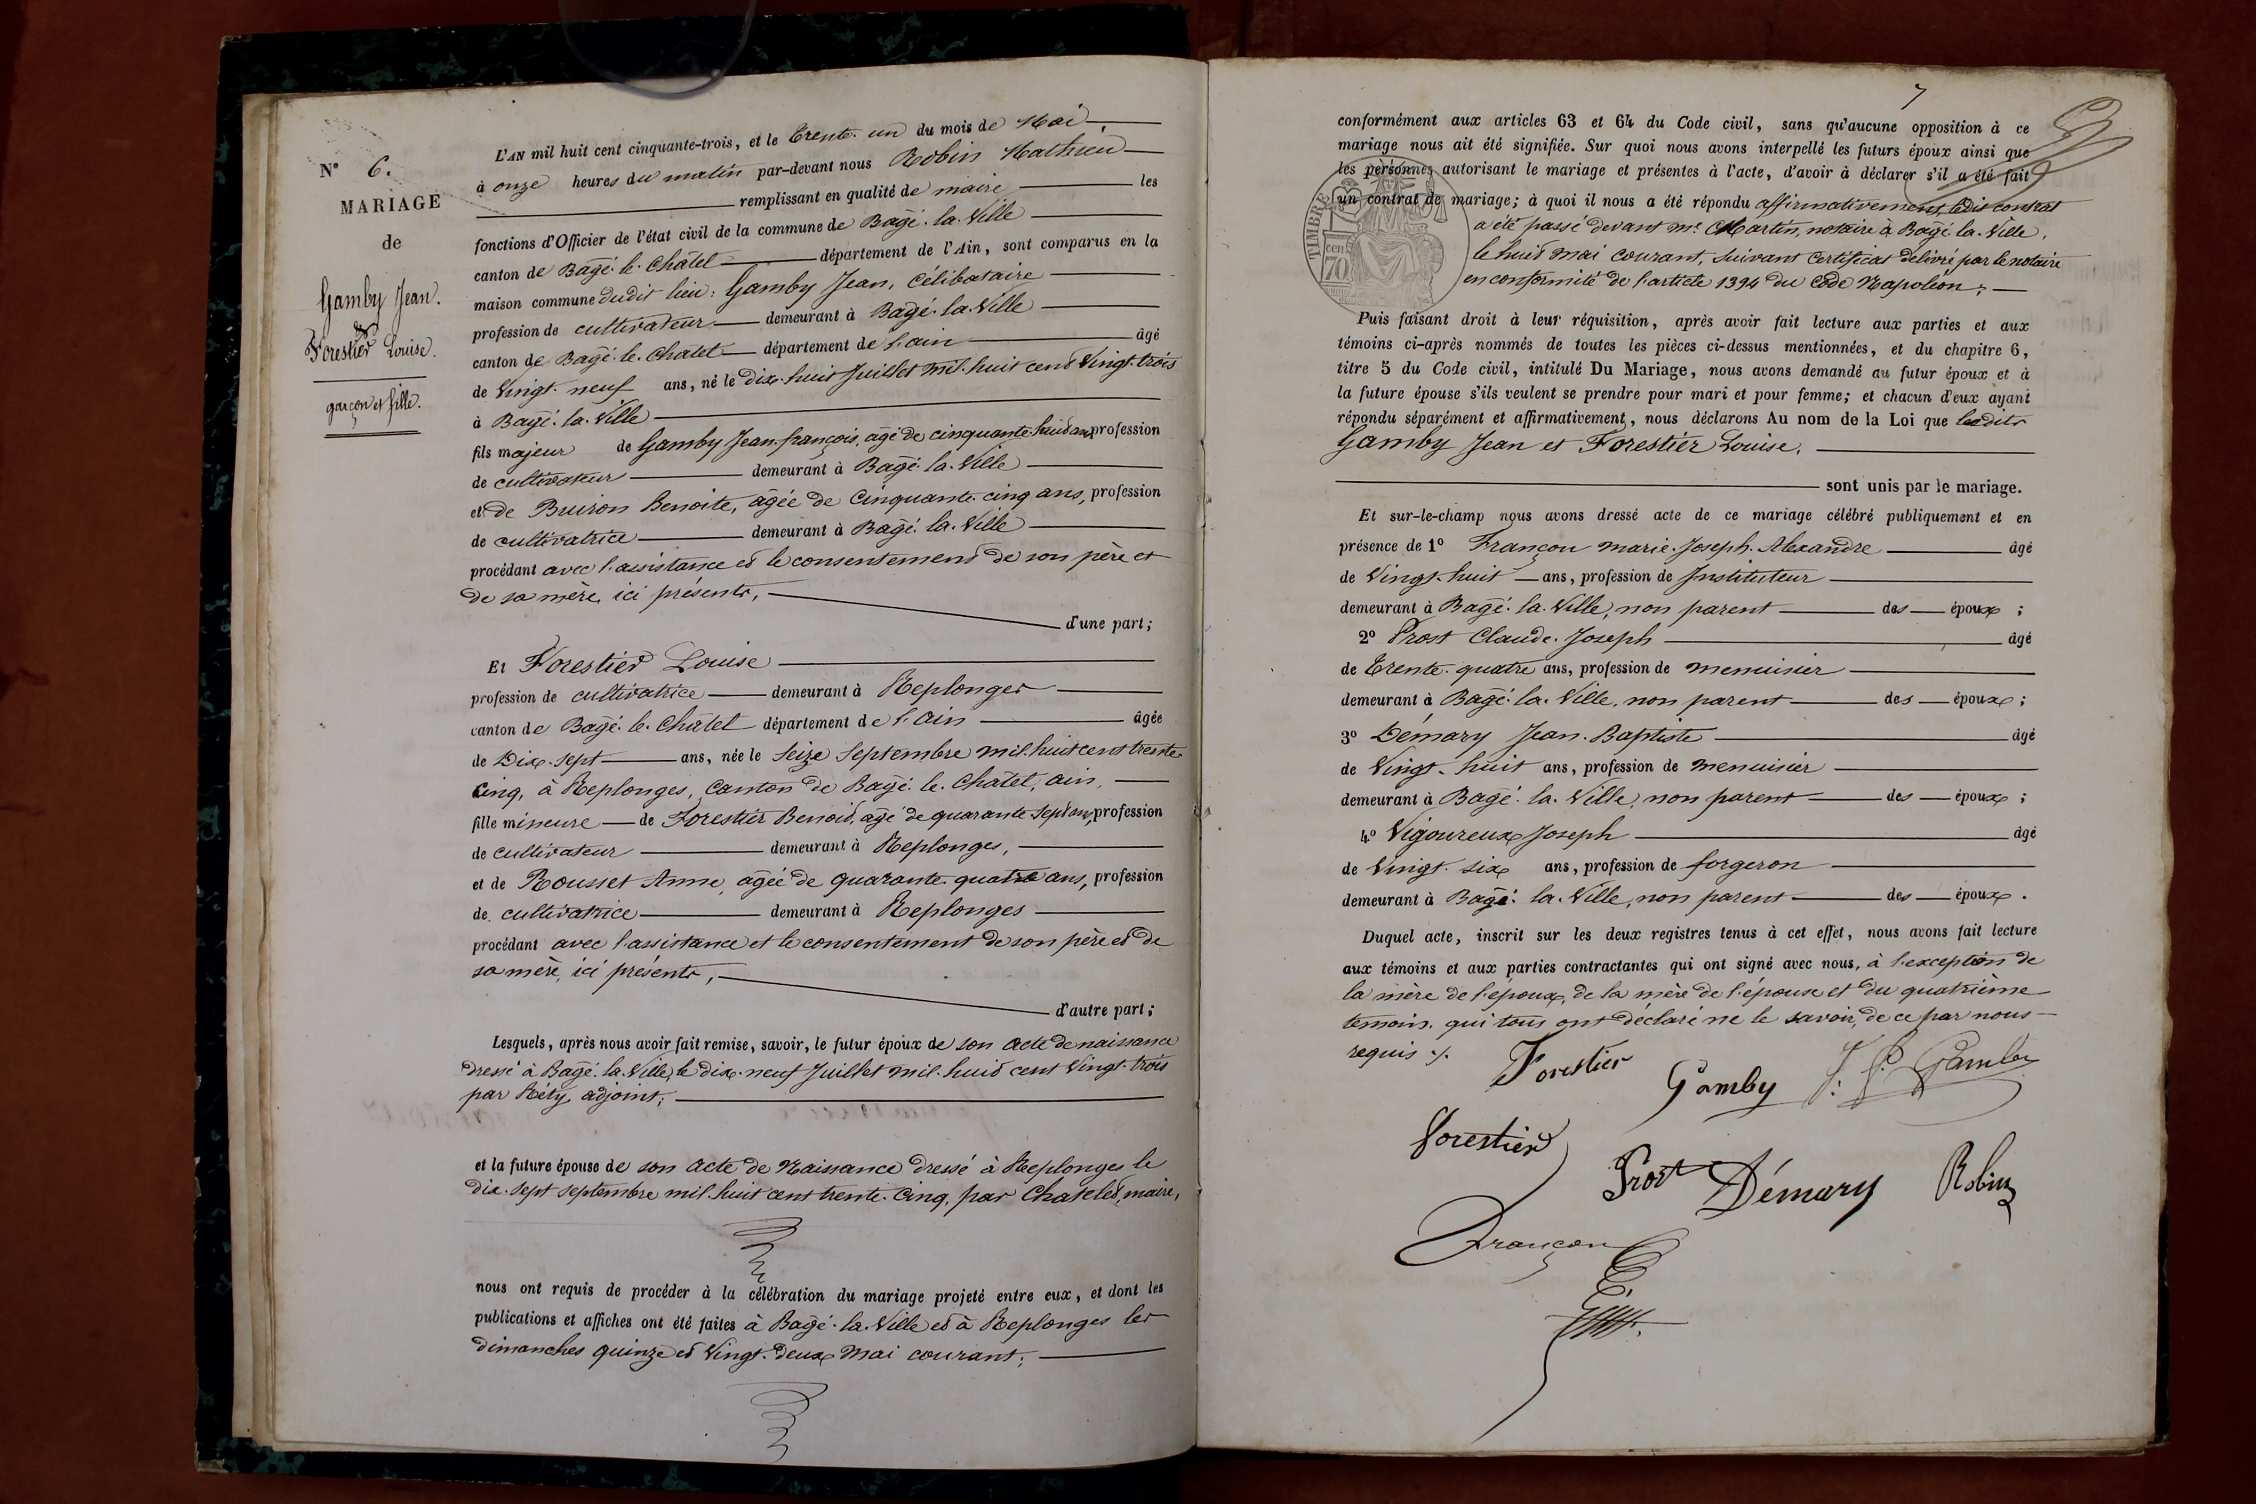 N° 6.
MARIAGE
de
Gamby Jean.
&
Forestier Louise.
garçon et fille.
L'AN mil huit cent cinquante-trois, et le trente-un du mois de Mai
à onze heures du matin par-devant nous Robin Mathieu
remplissant en qualité de maire les
fonctions d'Officier de l'état civil de la commune de Bagé-la-Ville
canton de Bagé-le-Châtel département de l'Ain, sont comparus en la
maison commune dudit lieu: Gamby Jean, Célibataire
profession de cultivateur demeurant à Bagé-la-Ville
canton de Bagé-le-Chatel département de l'ain âgé
de vingt-neuf ans, né le dix-huit Juillet mil-huit cent vingt-trois
à Bagé-la-Ville
fils majeur de Gamby Jean-françois, agé de cinquante-huit ans, profession
de cultivateur demeurant à Bagé-la-Ville
et de Buiron Benoite, agée de Cinquante-cinq ans, profession
de cultivatrice demeurant à Bagé-la-Ville
procédant avec l'assistance et le consentement de son père et
de sa mère, ici présents,
d'une part;
Et Forestier Louise
profession de cultivatrice demeurant à Replonges
canton de Bagé-le-Châtel département de l'ain âgée
de Dix-sept ans, née le Seize Septembre mil-huit cent trente-
cinq, à Replonges, Canton de Bagé-le-Châtel, ain,
fille mineure de Forestier Benoit, agé de quarante-sept ans, profession
de cultivateur demeurant à Replonges,
et de Rousset Anne, agée de quarante-quatre ans, profession
de cultivatrice demeurant à Replonges
procédant avec l'assistance et le consentement de son père et de
sa mère, ici présents,
d'autre part;
Lesquels, après nous avoir fait remise, savoir, le futur époux de son acte de naissance
dressé à Bagé-la-Ville, le dix-neuf Juillet mil-huit cent Vingt-trois
par Réty, adjoint;
et la future épouse de son acte de Naissance dressé à Replonges le
dix-sept septembre mil-huit cent trente-cinq, par Chatelet, maire,
nous ont requis de procéder à la célébration du mariage projeté entre eux, et dont les
publications et affiches ont été faites à Bagé-la-Ville et à Replonges les
dimanches quinze et vingt-deux Mai courant;
7
conformément aux articles 63 et 64 du Code civil, sans qu'aucune opposition à ce
mariage nous ait été signifiée. Sur quoi nous avons interpellé les futurs époux ainsi que
les personnes autorisant le mariage et présentes à l'acte, d'avoir à déclarer s'il a été fait
un contrat de mariage; à quoi il nous a été répondu affirmativement, ledit contrat
a été passé devant me Martin, notaire à Bagé-la-Ville,
le huit Mai courant, suivant certificat délivré par le notaire
en conformité de l'article 1394 du Code Napoléon;
TIMBRE
cen
70
Puis faisant droit à leur réquisition, après avoir fait lecture aux parties et aux
témoins ci-après nommés de toutes les pièces ci-dessus mentionnées, et du chapitre 6,
titre 5 du Code civil, intitulé Du Mariage, nous avons demandé au futur époux et à
la future épouse s'ils veulent se prendre pour mari et pour femme; et chacun d'eux ayant
répondu séparément et affirmativement, nous déclarons Au nom de la Loi que lesdits
Gamby Jean et Forestier Louise,
sont unis par le mariage.
Et sur-le-champ nous avons dressé acte de ce mariage célébré publiquement et en
présence de 1° Françon marie-Joseph-Alexandre âgé
de Vingt-huit ans, profession de Instituteur
demeurant à Bagé-la-Ville, non parent des époux;
2° Prost Claude-Joseph âgé
de trente-quatre ans, profession de menuisier
demeurant à Bagé-la-Ville, non parent des époux;
3° Démary Jean-Baptiste âgé
de Vingt-huit ans, profession de menuisier
demeurant à Bagé-la-Ville, non parent des époux;
4° Vigoureux Joseph âgé
de vingt-six ans, profession de forgeron
demeurant à Bagé-la-Ville, non parent des époux.
Duquel acte, inscrit sur les deux registres tenus à cet effet, nous avons fait lecture
aux témoins et aux parties contractantes qui ont signé avec nous, à l'exception de
la mère de l'époux, de la mère de l'épouse et du quatrième
temoin, qui tous ont déclaré ne le savoir, de ce par nous
requis ./.
Forestier Gamby J. f. Gamby
forestier
Prost Démary Robin
Françon